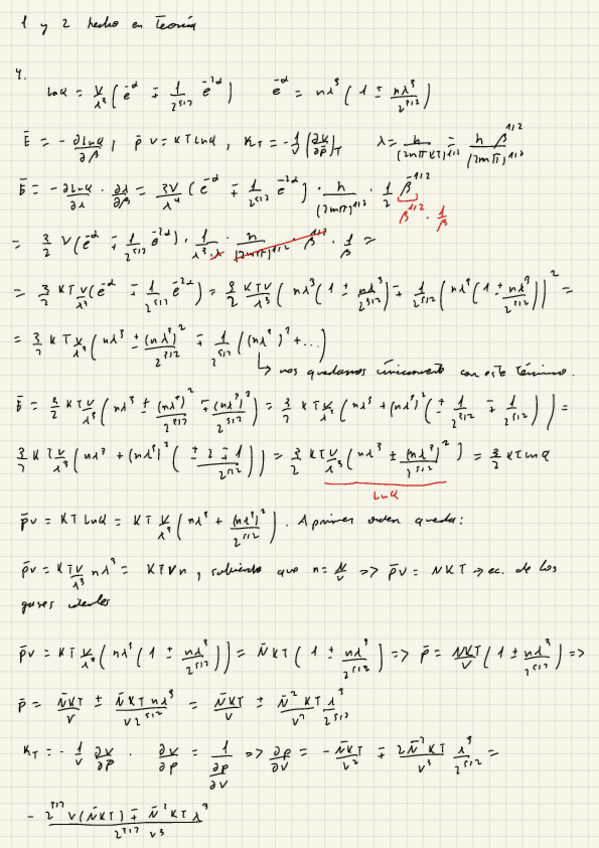 1 y 2 hecho en Teoría
4.
ln Q = V/λ³ (e^-α ∓ 1/2^5/2 e^-2α)   e^-α = nλ³ (1 ± nλ³/2^3/2)
Ē = - ∂lnQ/∂β ; p̄V = KT lnQ , K_T = -1/V (∂V/∂p̄)_T   λ = h/(2mπKT)^1/2 = h β^1/2/(2mπ)^1/2
Ē = - ∂lnQ/∂λ · ∂λ/∂β = 3V/λ⁴ (e^-α ∓ 1/2^5/2 e^-2α) · h/(2mπ)^1/2 · 1/2 β^-1/2
β^1/2 · 1/β
= 3/2 V (e^-α ∓ 1/2^5/2 e^-2α) · 1/λ³·λ · h/(2mπ)^1/2 · β^1/2 · 1/β =
= 3/2 KT V/λ³ (e^-α ∓ 1/2^5/2 e^-2α) = 3/2 KTV/λ³ (nλ³ (1 ± nλ³/2^3/2) ∓ 1/2^5/2 (nλ³ (1 ± nλ³/2^3/2))² =
= 3/2 KT V/λ³ (nλ³ ± (nλ³)²/2^3/2 ∓ 1/2^5/2 ((nλ³)² + ...)
↳ nos quedamos únicamente con este término.
Ē = 3/2 KT V/λ³ (nλ³ ± (nλ³)²/2^3/2 ∓ (nλ³)²/2^5/2) = 3/2 KT V/λ³ (nλ³ + (nλ³)² (± 1/2^3/2 ∓ 1/2^5/2)) =
3/2 KT V/λ³ (nλ³ + (nλ³)² (± 2 ∓ 1/2^5/2)) = 3/2 KTV/λ³ (nλ³ ± (nλ³)²/2^5/2) = 3/2 KT lnQ
lnQ
p̄V = KT lnQ = KT V/λ³ (nλ³ + (nλ³)²/2^5/2). A primer orden queda:
p̄V = KTV/λ³ nλ³ = KTVn, sabiendo que n = N/V => p̄V = NKT → ec. de los
gases ideales
p̄V = KT V/λ³ (nλ³ (1 ± nλ³/2^5/2)) = N̄KT (1 ± nλ³/2^5/2) => p̄ = N̄KT/V (1 ± nλ³/2^5/2) =>
p̄ = N̄KT/V ± N̄KT nλ³/V 2^5/2 = N̄KT/V ± N̄² KT/V² λ³/2^5/2
K_T = - 1/V ∂V/∂p . ∂V/∂p = 1/(∂p/∂V) => ∂p/∂V = - N̄KT/V² ∓ 2N̄²KT/V³ λ³/2^5/2 =
- (2^3/2 V(N̄KT) ∓ N̄² KT λ³)/(2^3/2 V³)